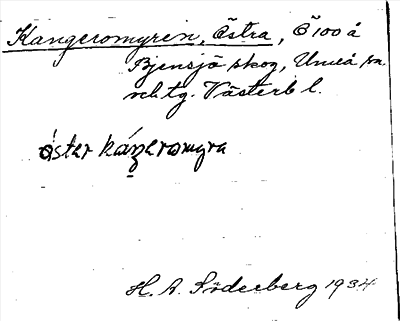 Kangeromyren, Östra, Ö 100 å
Bjensjö skog, Umeå sn
och tg. Västerb l.
öster káŋeromyra
H. A. Söderberg 1934